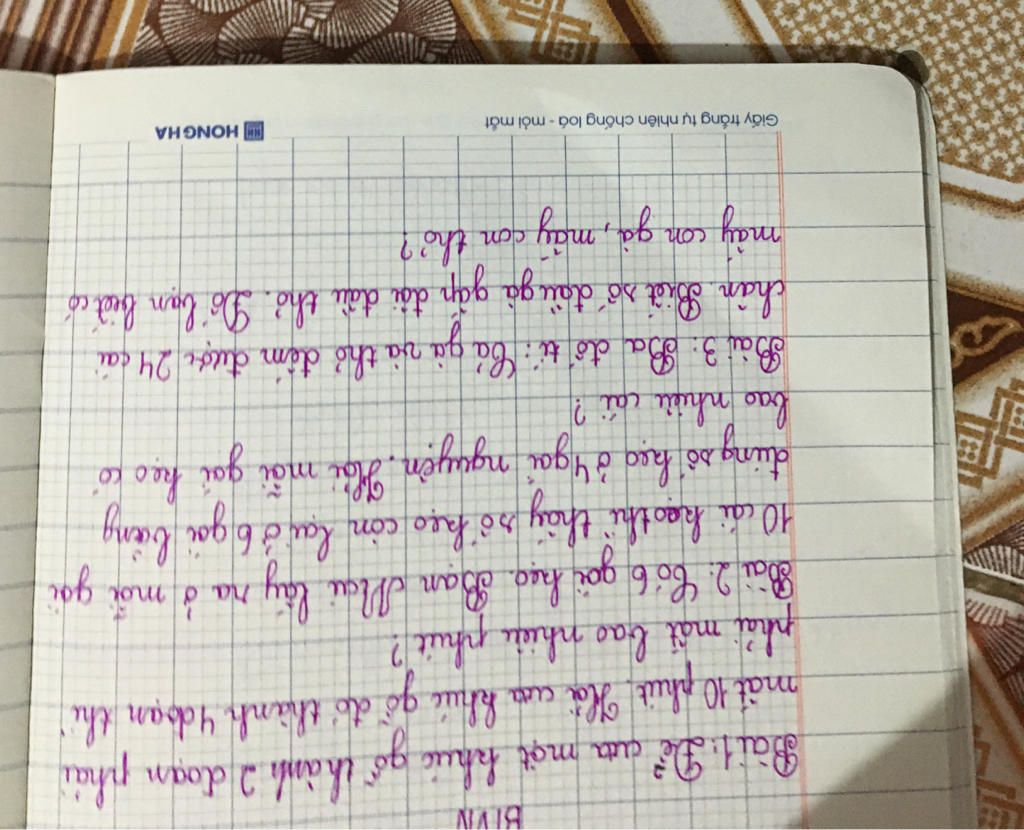 BTVN
Bài 1: Để cưa một khúc gỗ thành 2 đoạn phải
mất 10 phút. Hỏi cưa khúc gỗ đó thành 4 đoạn thì
phải mất bao nhiêu phút?
Bài 2: Có 6 gói kẹo. Bạn Mai lấy ra ở mỗi gói
10 cái kẹo thì thấy số kẹo còn lại ở 6 gói bằng
đúng số kẹo ở 4 gói nguyên. Hỏi mỗi gói kẹo có
bao nhiêu cái?
Bài 3: Ba đố tí: Cả gà và thỏ đếm được 24 cái
chân. Biết số đầu gà gấp đôi đầu thỏ. Đố bạn biết có
mấy con gà, mấy con thỏ?
Giấy trắng tự nhiên chống loá - mỏi mắt
HONG HA